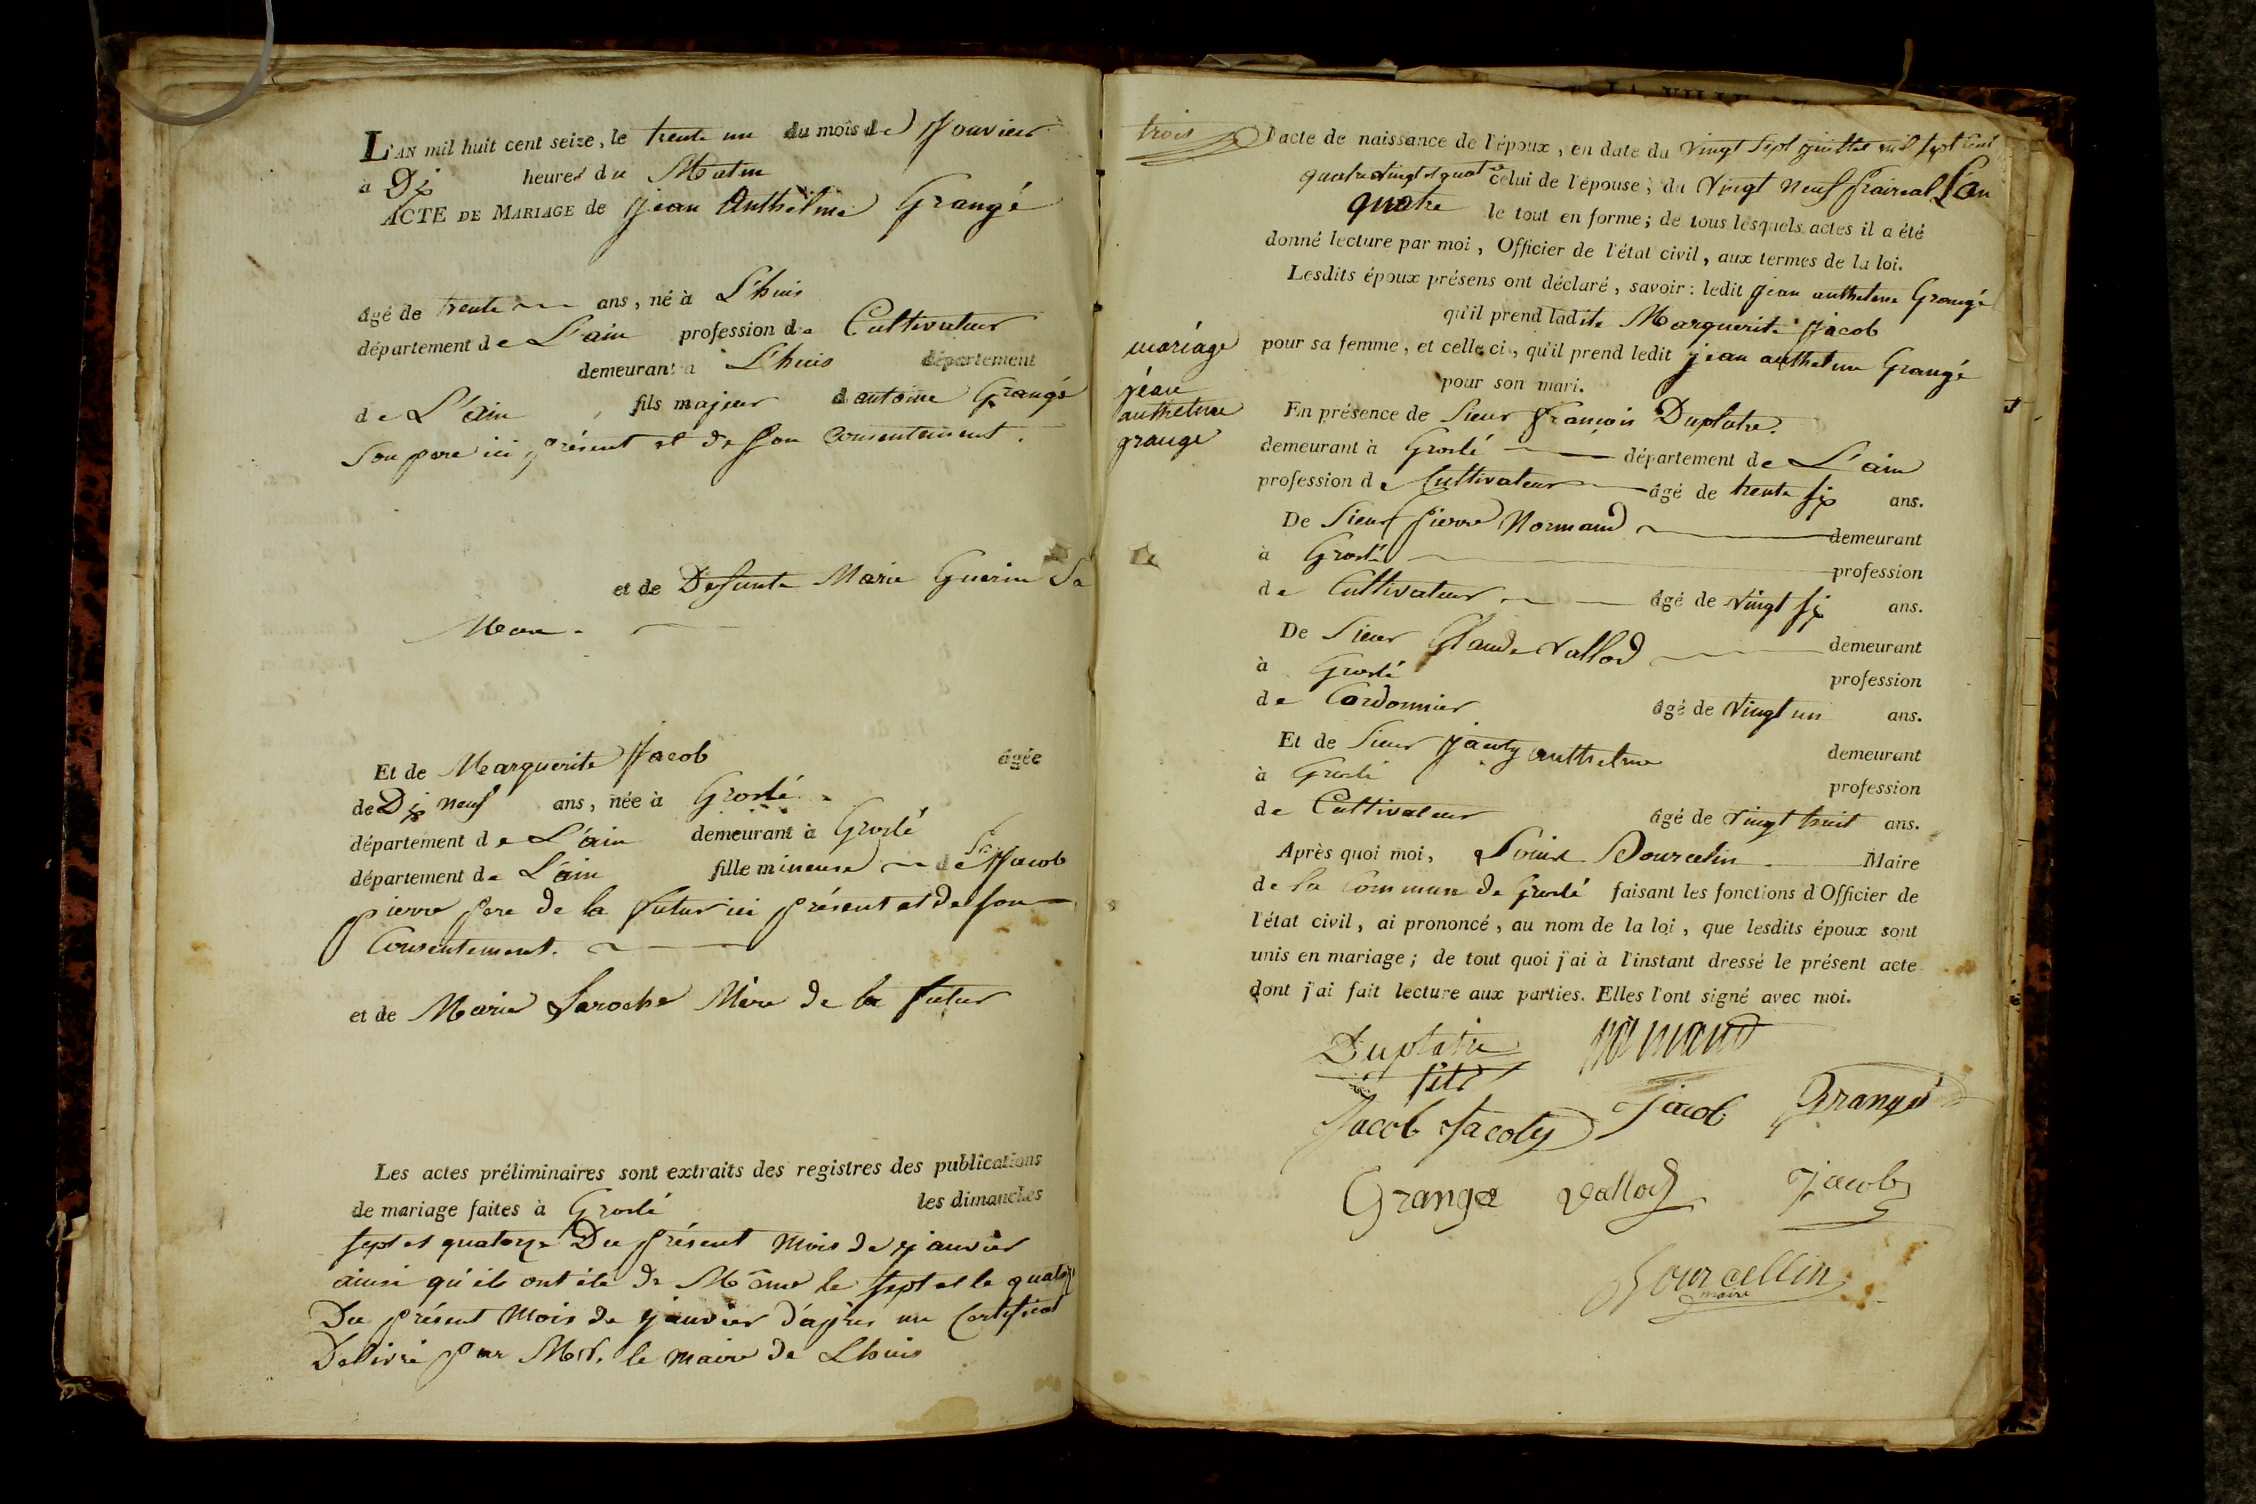 L'AN mil huit cent seize, le trente un du mois de Janvier
à Dix heures du Matin
ACTE DE MARIAGE de jean Anthelme Grangé
âgé de trente ans, né à L'huis
département de L'ain profession de Cultivateur
demeurant à L'huis département
de L'ain, fils majeur d antoine Grangé
Son pere ici présent et de son Consentement.
et de Defunte Marie Guerin Sa
Mere.
Et de Marguerite Jacob âgée
de Dix neuf ans, née à Groslé
département de L'ain demeurant à Groslé
département de L'ain fille mineure de Sr Jacob
pierre pere de la futur ici présent et de son
Consentement.
et de Marie Laroche Mere de la futur
Les actes préliminaires sont extraits des registres des publications
de mariage faites à Groslé les dimanches
sept et quatorze Du présent Mois de janvier
ainsi qu'ils ont été de Même le sept et le quatorze
Du présent Mois de janvier d'après un Certificat
Delivré par Mr. le maire de Lhuis
trois
mariage
jean
anthelme
grange
l'acte de naissance de l'époux, en date du vingt sept juillet mil sept cent
quatre vingt et quatre celui de l'épouse, du vingt neuf praireal L'an
quatre le tout en forme; de tous lesquels actes il a été
donné lecture par moi, Officier de l'état civil, aux termes de la loi.
Lesdits époux présens ont déclaré, savoir: ledit jean anthelme Grangé
qu'il prend ladite Marguerite Jacob
pour sa femme, et celle ci, qu'il prend ledit jean anthelme Grangé
pour son mari.
En présence de Sieur François Duplatre.
demeurant à Groslé département de L'ain
profession de Cultivateur âgé de trente six ans.
De Sieur pierre Normand demeurant
à Groslé profession
de Cultivateur âgé de vingt six ans.
De Sieur Claude Vallod demeurant
à Groslé profession
de Cordonnier âgé de vingt un ans.
Et de Sieur jacoty anthelme demeurant
à Groslé profession
de Cultivateur âgé de vingt huit ans.
Après quoi moi, Louis Bourcelin Maire
de la Commune de Groslé faisant les fonctions d'Officier de
l'état civil, ai prononcé, au nom de la loi, que lesdits époux sont
unis en mariage; de tout quoi j'ai à l'instant dressé le présent acte
dont j'ai fait lecture aux parties. Elles l'ont signé avec moi.
Duplatre
fils
Jacob Jacoty Jacob Grangé
Grange Vallod Jacob
Bourcellin
maire